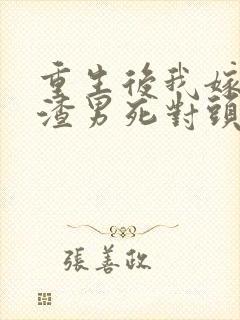 重生後我嫁
渣男死對頭
張善政